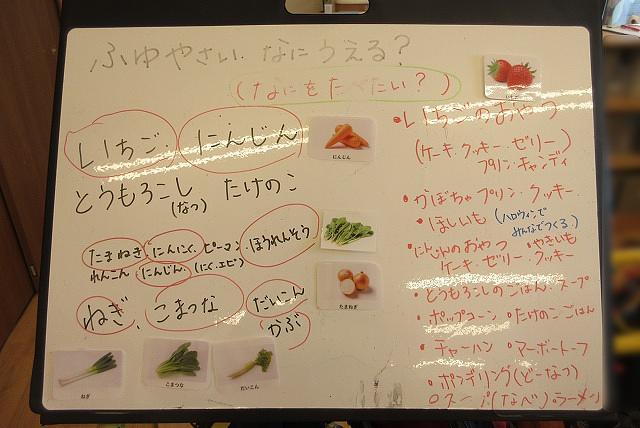 ふゆやさい なにうえる?
(なにをたべたい?)
いちご にんじん
とうもろこし たけのこ
(なつ)
たまねぎ・にんにく・ピーマン・ほうれんそう
れんこん にんじん (にく、エビ)
ねぎ、こまつな だいこん
かぶ
にんじん
たまねぎ
ねぎ
こまつな
だいこん
・いちごのおやつ
(ケーキ・クッキー・ゼリー)
プリン・キャンディ
・かぼちゃプリン・クッキー
・ほしいも (ハロウィンで
みんなでつくる)
・にんじんのおやつ ・やきいも
ケーキ・ゼリー・クッキー
・とうもろこしのごはん・スープ
・ポップコーン ・たけのこごはん
・チャーハン ・マーボードーフ
・ポンデリング(どーなつ)
○スープ(なべ)○ラーメン